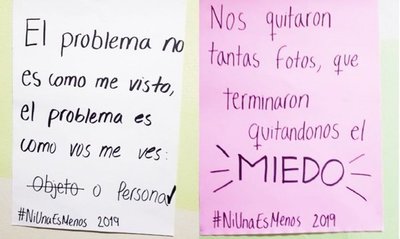 El problema no
es como me visto,
el problema es
como vos me ves:
Objeto o Persona
#NiUnaEsMenos 2019
Nos quitaron
tantas fotos, que
terminaron
quitandonos el
MIEDO
#NiUnaEsMenos 2019